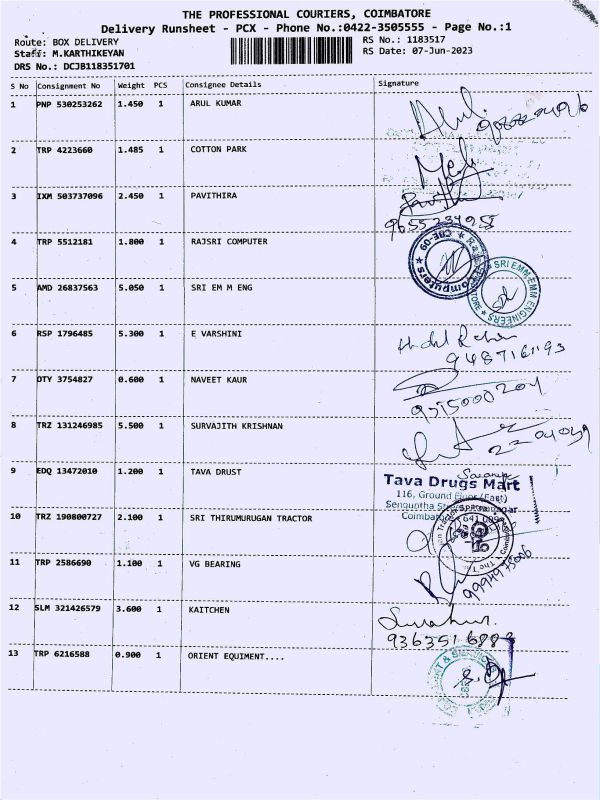 THE PROFESSIONAL COURIERS, COIMBATORE
Delivery Runsheet - PCX - Phone No.:0422-3505555 - Page No.:1
Route: BOX DELIVERY RS No.: 1183517
Staff: M.KARTHIKEYAN RS Date: 07-Jun-2023
DRS No.: DCJB118351701
S No Consignment No Weight PCS Consignee Details Signature
1 PNP 530253262 1.450 1 ARUL KUMAR
2 TRP 4223660 1.485 1 COTTON PARK
3 IXM 503737096 2.450 1 PAVITHIRA
9655234955
4 TRP 5512181 1.800 1 RAJSRI COMPUTER
Computers ★ CBE-09 ★
5 AMD 26837563 5.050 1 SRI EM M ENG
SRI EMM EMM ENGINEERS
6 RSP 1796485 5.300 1 E VARSHINI
9487161193
7 OTY 3754827 0.600 1 NAVEET KAUR
8 TRZ 131246985 5.500 1 SURVAJITH KRISHNAN
9 EDQ 13472010 1.200 1 TAVA DRUST
Tava Drugs Mart
116, Ground Floor (East)
10 TRZ 190800727 2.100 1 SRI THIRUMURUGAN TRACTOR
11 TRP 2586690 1.100 1 VG BEARING
12 SLM 321426579 3.600 1 KAITCHEN
13 TRP 6216588 0.900 1 ORIENT EQUIMENT....